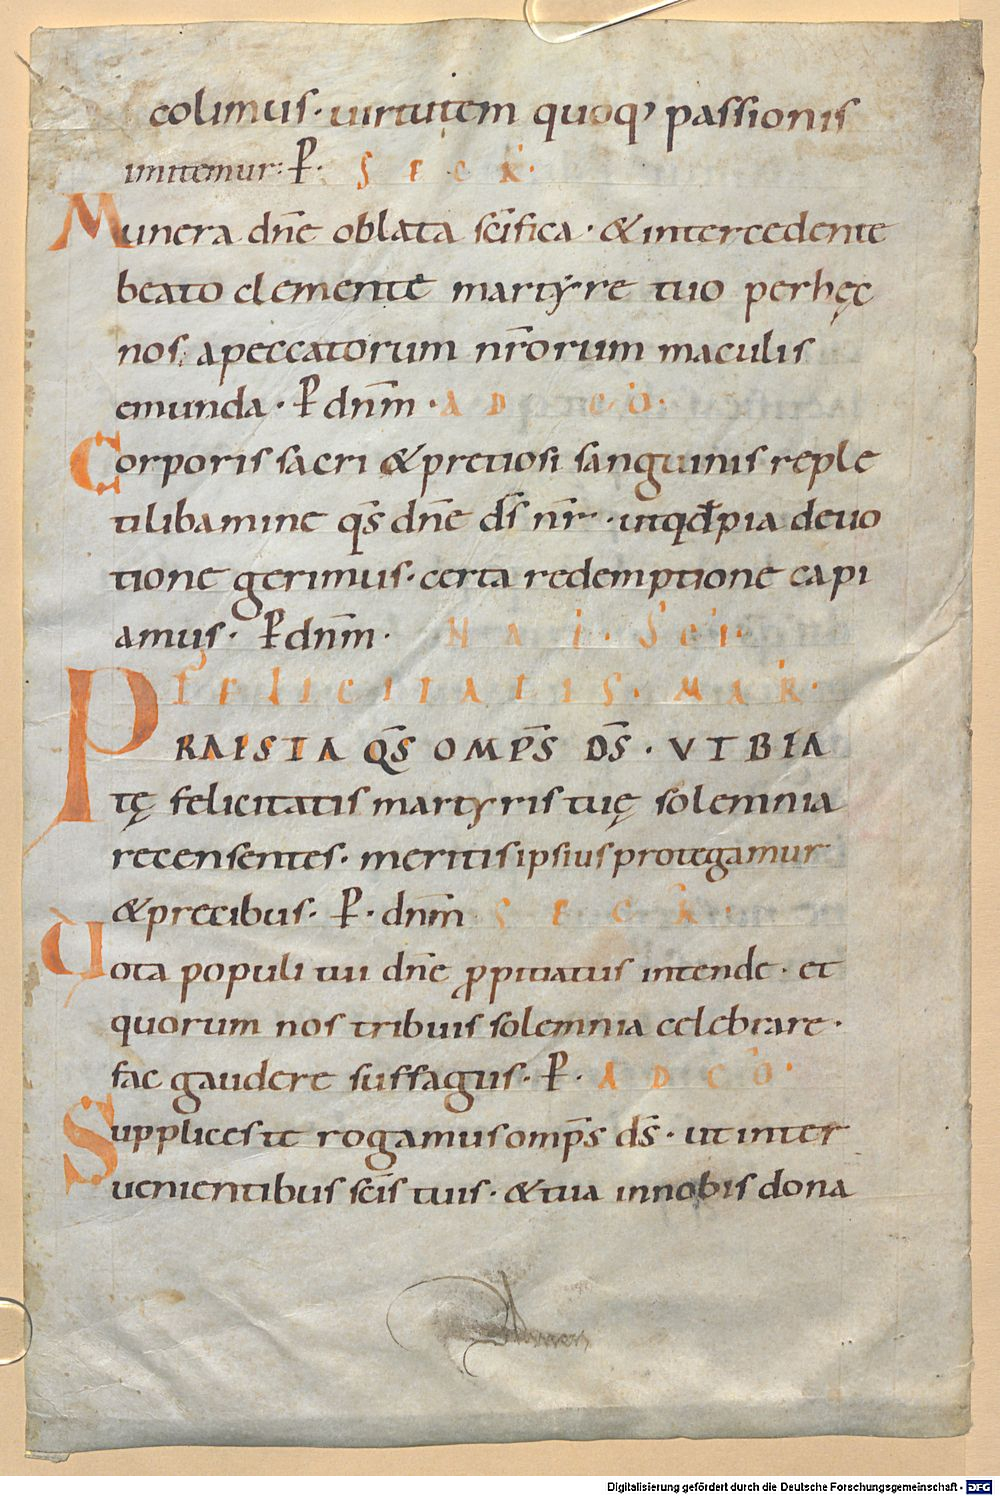 colimus · uirtutem quoq; passionis
imitemur · P̄ · SECR̄ ·
Munera dn̄e oblata sc̄ifica · & intercedente
beato clemente martyre tuo per hęc
nos a peccatorum nr̄orum maculis
emunda · P̄ dn̄m · AD CO ·
Corporis sacri & pretiosi sanguinis reple
ti libamine qs̄ dn̄e ds̄ nr̄ · ut qđ pia deuo
tione gerimus · certa redemptione capi
amus · P̄ dn̄m · NAT · SCI ·
FELICITATIS · MAR ·
PRAESTA QS̄ OMPS̄ DS̄ · VT BEA
tę felicitatis martyris tuę solemnia
recensentes · meritis ipsius protegamur
& precibus · P̄ · dn̄m SECR̄ ·
Uota populi tui dn̄e ꝓpitiatus intende · et
quorum nos tribuis solemnia celebrare ·
fac gaudere suffragus · P̄ · AD CO ·
Supplices te rogamus omps̄ ds̄ · ut inter
uenientibus sc̄is tuis · & tua in nobis dona
Digitalisierung gefördert durch die Deutsche Forschungsgemeinschaft - DFG